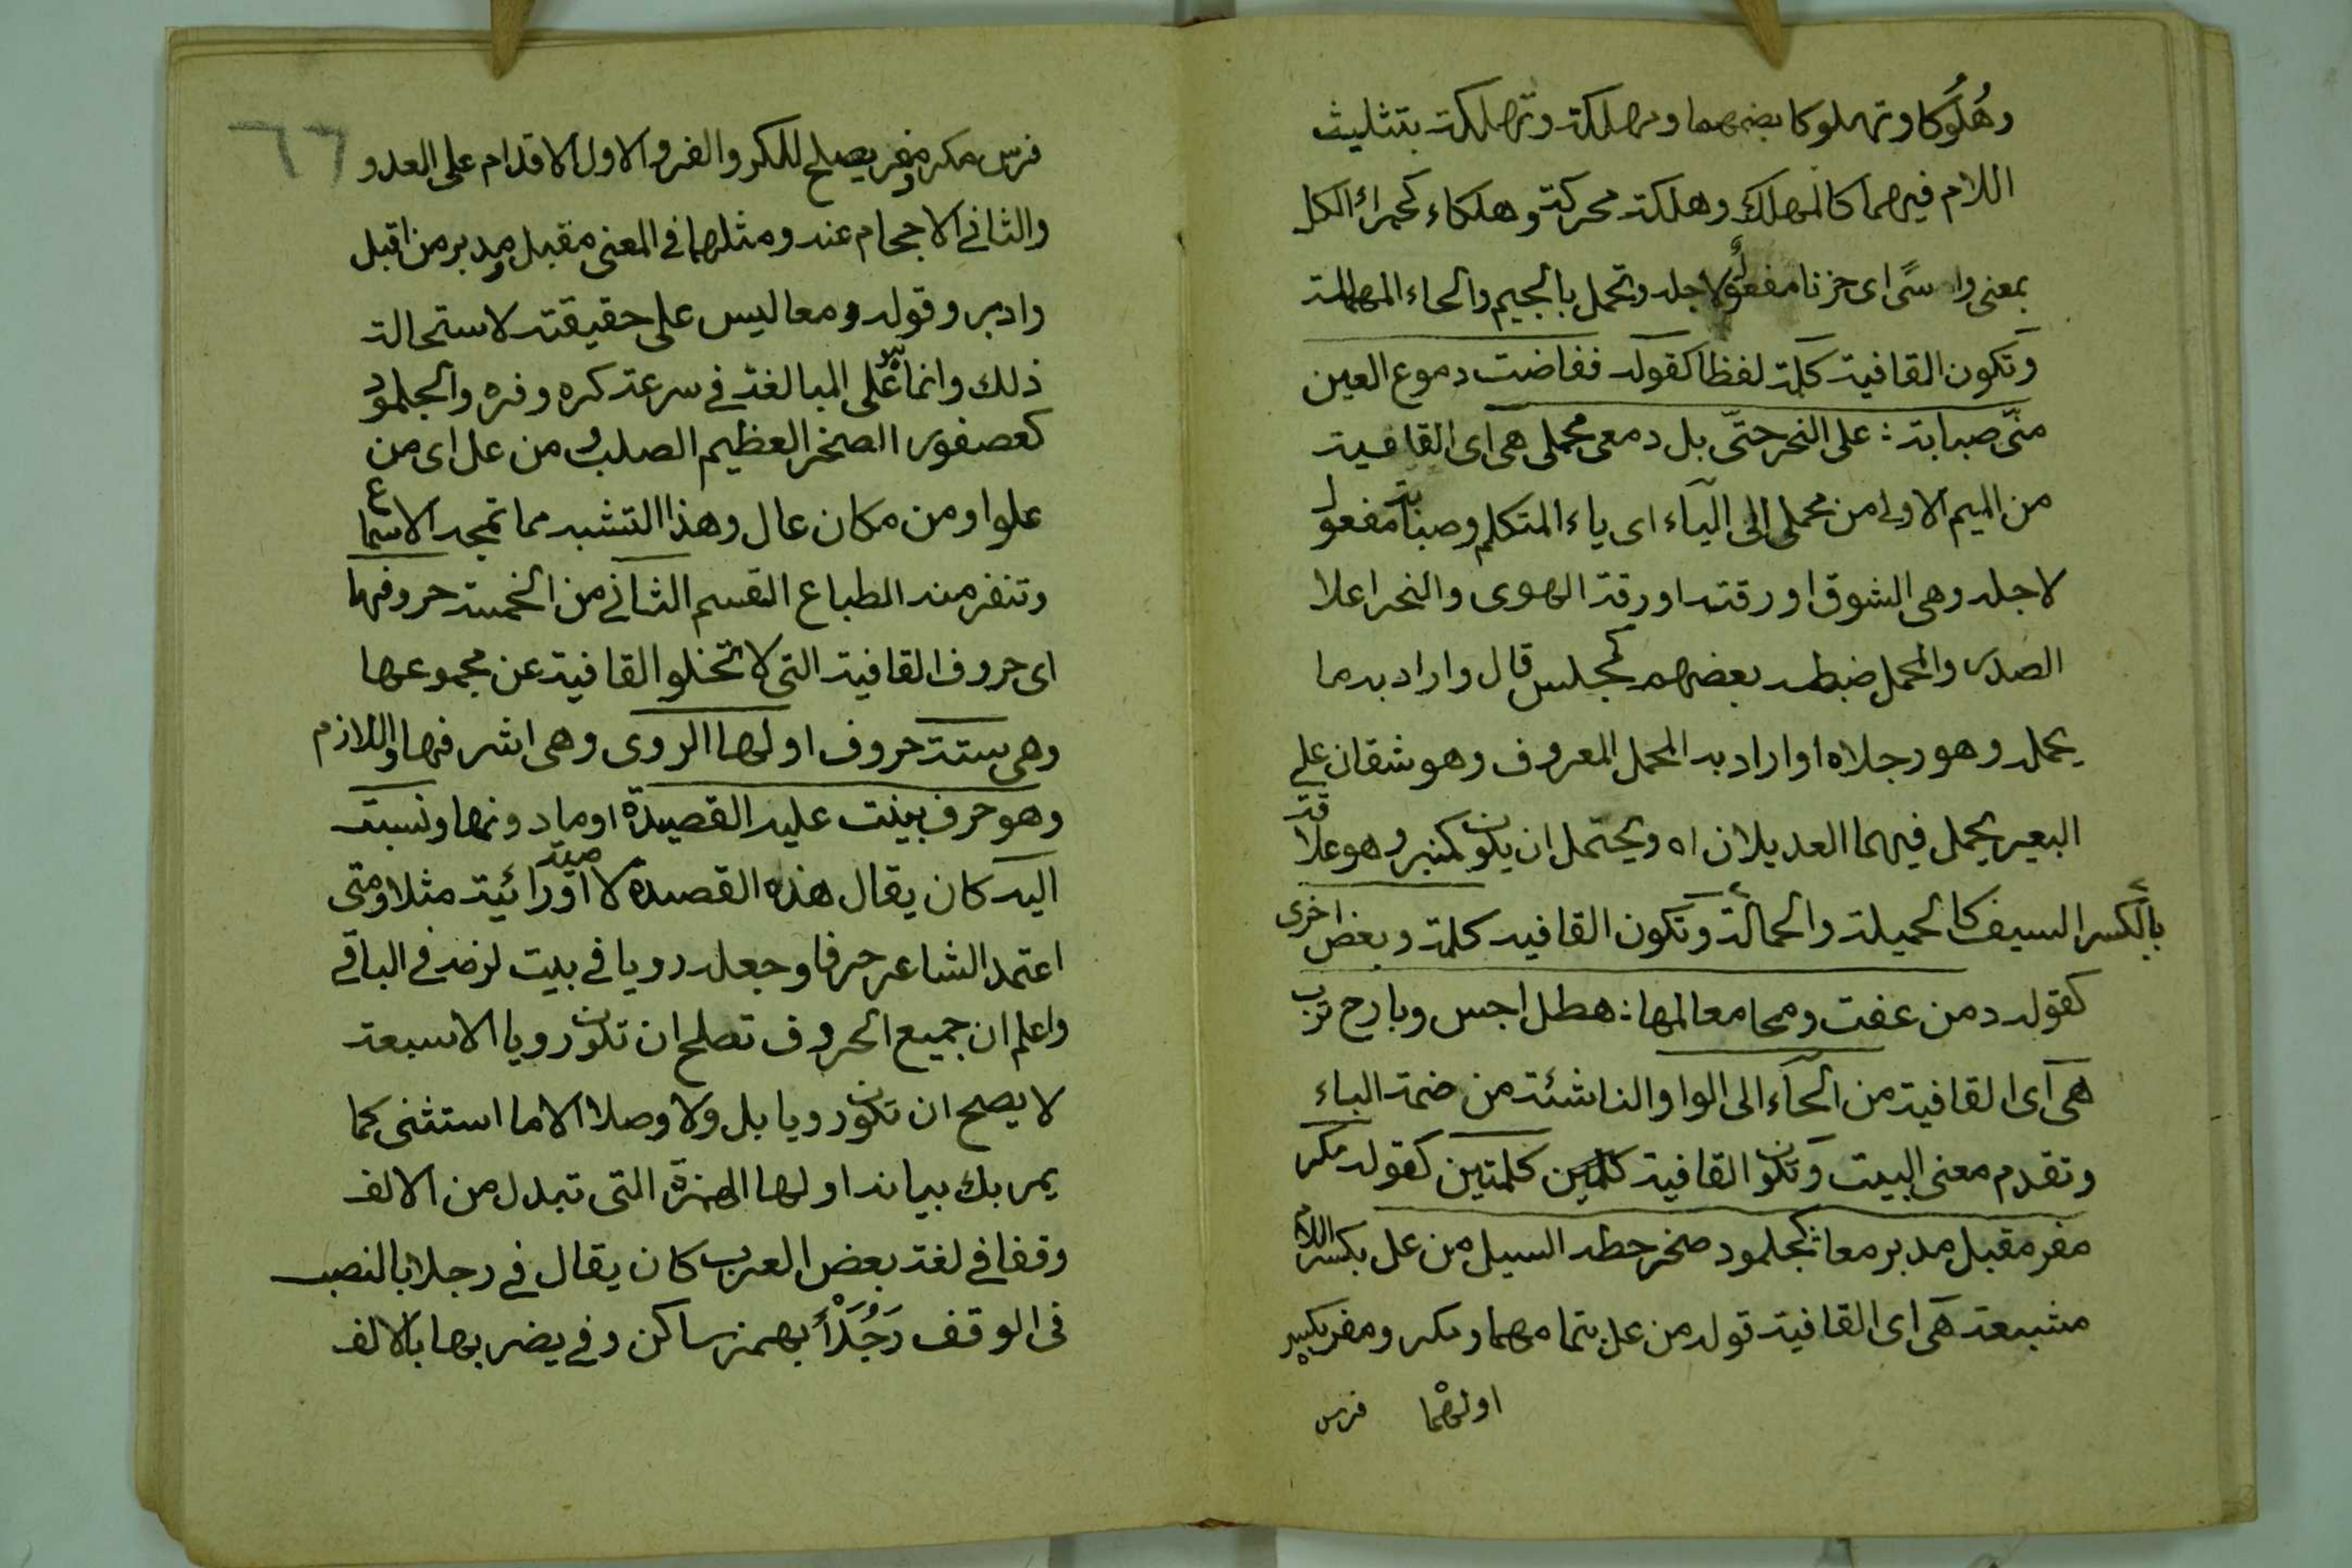 وهُلُوكا وتهلوكا بضمهما ومهلكة وتهلكة بتثليث
اللام فيهما كالمهلك وهلكة محركة وهلكاء كحمراء الكل
بمعنى واسًى اى حزنا مفعول لاجله وتجمل بالجيم والحاء المهملة
وتكون القافية كلمة لفظا كقوله ففاضت دموع العين
منّى صبابة : على النحر حتّى بل دمعى محملى هى اى القافية
من الميم الاولى من محملى الى الياء اى ياء المتكلم وصبابة مفعول
لاجله وهى الشوق او رقته او رقة الهوى والنحر اعلا
الصدر والمحمل ضبطه بعضهم كمجلس قال واراد به ما
يحمله وهو رجلاه او اراد به المحمل المعروف وهو شقان على
البعير يحمل فيهما العديلان اه ويحتمل ان يكون كمنبر وهو علاقة
السيف كالحميلة والحمالة بالكسر وتكون القافيه كلمة وبعض اخرى
كقوله دمن عفت ومحا معالمها : هطل اجس وبارح ترب
هى اى القافية من الحاء الى الواو الناشئة من ضمة الباء
وتقدم معنى البيت وتكون القافية كلمتين كقوله مكر
مفر مقبل مدبر معا : كجلمود صخر حطه السيل من عل بكسر اللام
مشبعة هى اى القافية قوله من عل بتمامهما ومكر ومفر بكسر
اولهما فرس
٦٦
فرس مكر ومفر يصلح للكر والفر والاول الاقدام على العدو
والثانى الاحجام عنه ومثلهما فى المعنى مقبل ومدبر من اقبل
وادبر وقوله معا ليس على حقيقته لاستحالة
ذلك وانما هو على المبالغة فى سرعة كره وفره والجلمود
كعصفور الصخر العظيم الصلب ومن عل اى من
علو او من مكان عال وهذا التشبه مما تمجه الاسماع
وتنفر منه الطباع القسم الثانى من الخمسة حروفها
اى حروف القافية التى لا تخلو القافية عن مجموعها
وهى ستة حروف اولها الروى وهى اشرفها واللازم
وهو حرف بينت عليه القصيدة او ما دونها ونسبت
اليه كان يقال هذه القصيدة لامية او رائية مثلا ومتى
اعتمد الشاعر حرفا وجعله رويا فى بيت لزمه فى الباقى
واعلم ان جميع الحروف تصلح ان تكون رويا الا سبعة
لا يصح ان تكون رويا بل ولا وصلا الا ما استثنى كما
يمر بك بيانه اولها الهمزة التى تبدل من الالف
وقفا فى لغة بعض العرب كان يقال فى رجلا بالنصب
فى الوقف رَجُلَأْ بهمز ساكن وفى يضربها بالالف